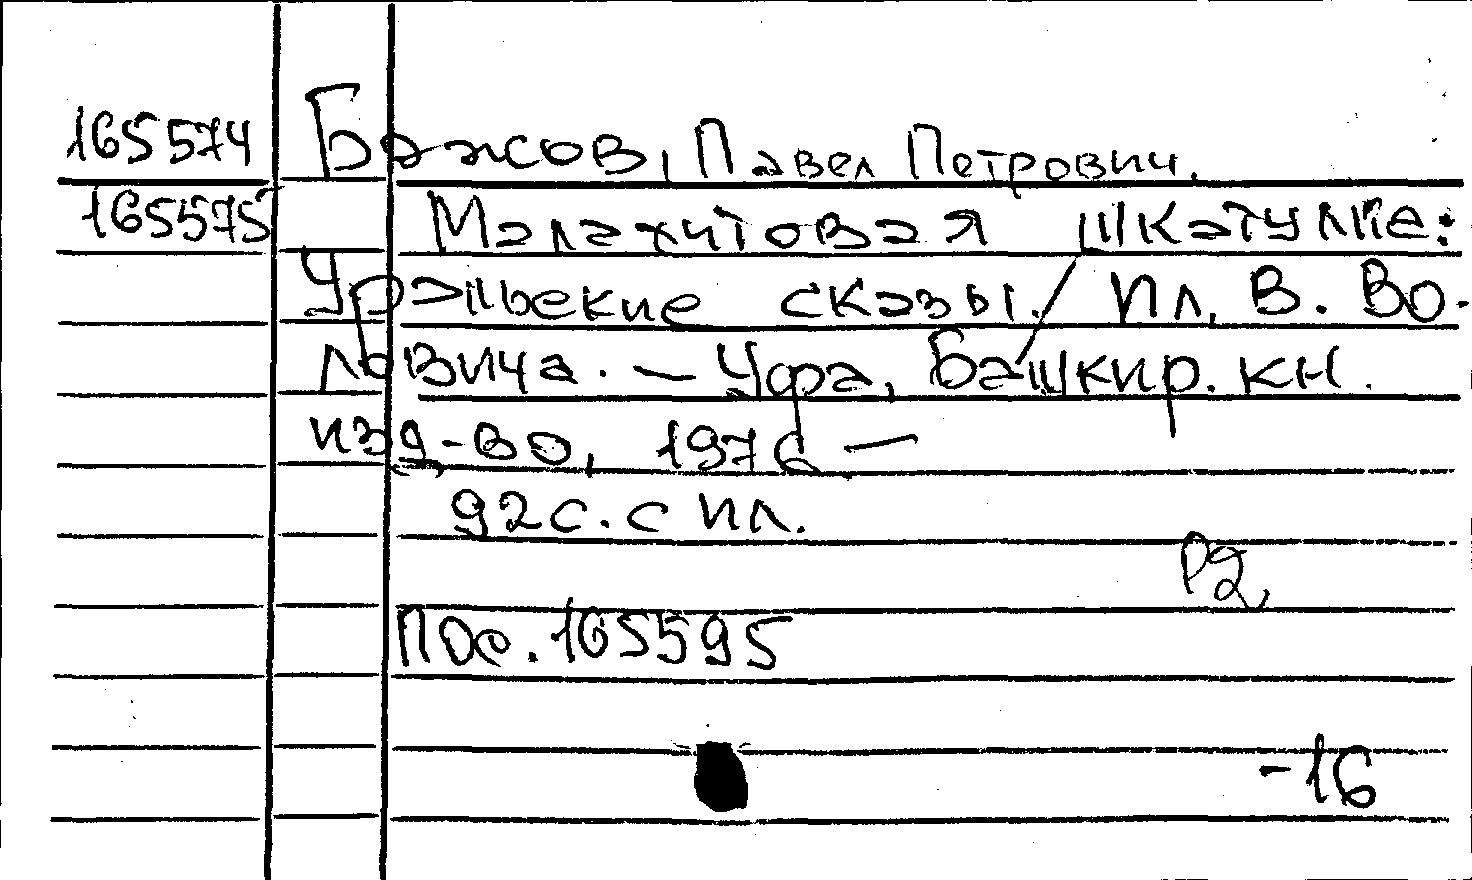 165574 Бажов, Павел Петрович.
165575 Малахитовая шкатулке:
Уральские сказы. Ил. В. Во-
ловича. — Уфа, Башкир. кн.
изд-во, 1976 —
92 с. с ил.
Р2,
165595
-16